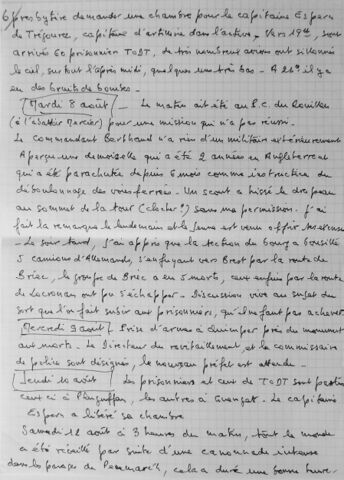 6/ presbytère demander une chambre pour le capitaine Espern
de Trégourez, capitaine d'artillerie dans l'active. Vers 19h, sont
arrivés 60 prisonniers TODT, de très nombreux avions ont sillonné
le ciel, surtout l'après midi, quelques uns très bas - A 21h il y a
eu des bruits de bombes.
Mardi 8 août - Le matin ai été au P.C. du
(à l'abattoir Mercier) pour une mission qui n'a pas réussi.
Le commandant Berthaud n'a rien d'un militaire extérieurement
Aperçu une demoiselle qui a été 2 années en Angleterre et
qui a été parachutée depuis 6 mois comme instructrice du
déboulonnage des voies ferrées. Un scout a hissé le drapeau
au sommet de la tour (clocher ?) sans ma permission. J'ai
fait la remarque le lendemain et le jeune est venu offrir ses excuses
- Le soir tard, j'ai appris que la section du bourg a bousillé
5 camions d'Allemands, s'enfuyant vers Brest par la route de
Briec, le groupe de Briec a eu 5 morts, ceux enfuis par la route
de Locronan ont pu s'échapper - Discussion vive au sujet du
sort que l'on fait subir aux prisonniers, qu'il ne faut pas achever.
Mercredi 9 août - Prise d'armes à Quimper près du monument
aux morts. Le Directeur du ravitaillement et le commissaire
de police sont désignés, le nouveau préfet est attendu -
Jeudi 10 août Les prisonniers et ceux de TODT sont partis
ceux ci à Pluguffan, les autres à Guengat. Le capitaine
Espern a libéré sa chambre
Samedi 12 août à 3 heures du matin, tout le monde
a été réveillé par suite d'une canonnade intense
dans les parages de Penmarc'h, cela a duré une bonne heure.